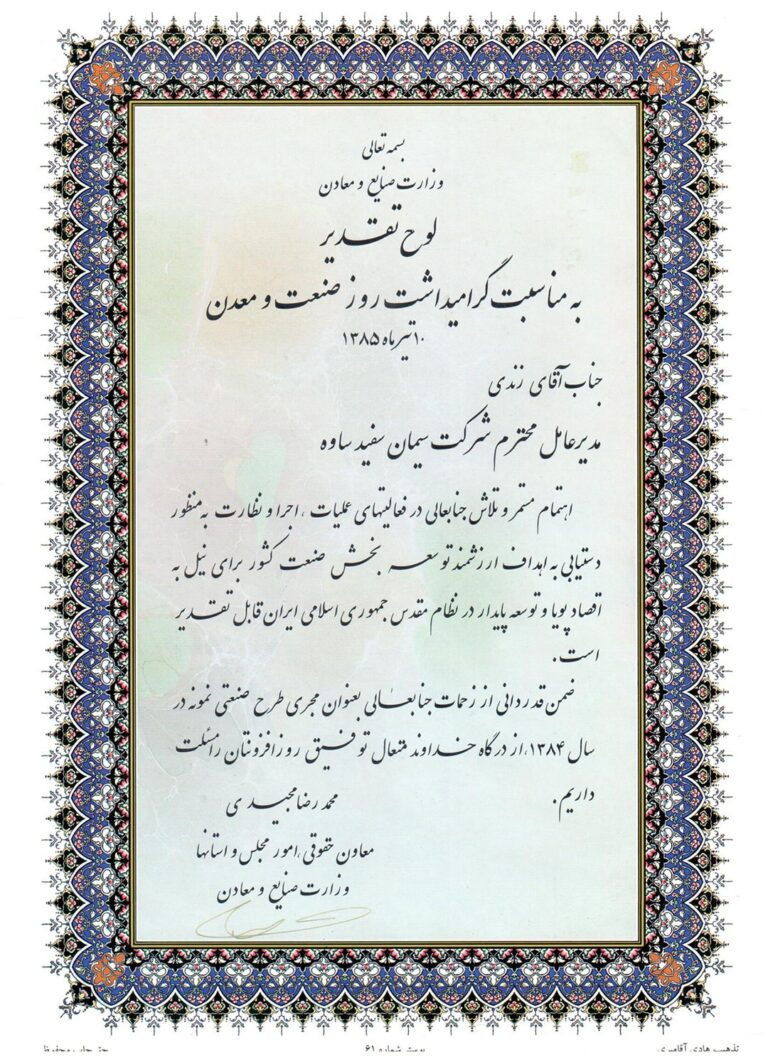 بسمه تعالی
وزارت صنایع و معادن
لوح تقدیر
به مناسبت گرامیداشت روز صنعت و معدن
۱۰ تیر ماه ۱۳۸۵
جناب آقای زندی
مدیرعامل محترم شرکت سیمان سفید ساوه
اهتمام مستمر و تلاش جنابعالی در فعالیتهای عملیات ، اجرا و نظارت به منظور
دستیابی به اهداف ارزشمند توسعه بخش صنعت کشور برای نیل به
اقتصاد پویا و توسعه پایدار در نظام مقدس جمهوری اسلامی ایران قابل تقدیر
است .
ضمن قدردانی از زحمات جنابعالی بعنوان مجری طرح صنعتی نمونه در
سال ۱۳۸۴، از درگاه خداوند متعال توفیق روزافزونتان را مسئلت
داریم .
محمدرضا مجیدی
معاون حقوقی ، امور مجلس و استانها
وزارت صنایع و معادن
تذهیب هادی آقامیری
شماره ۶۱